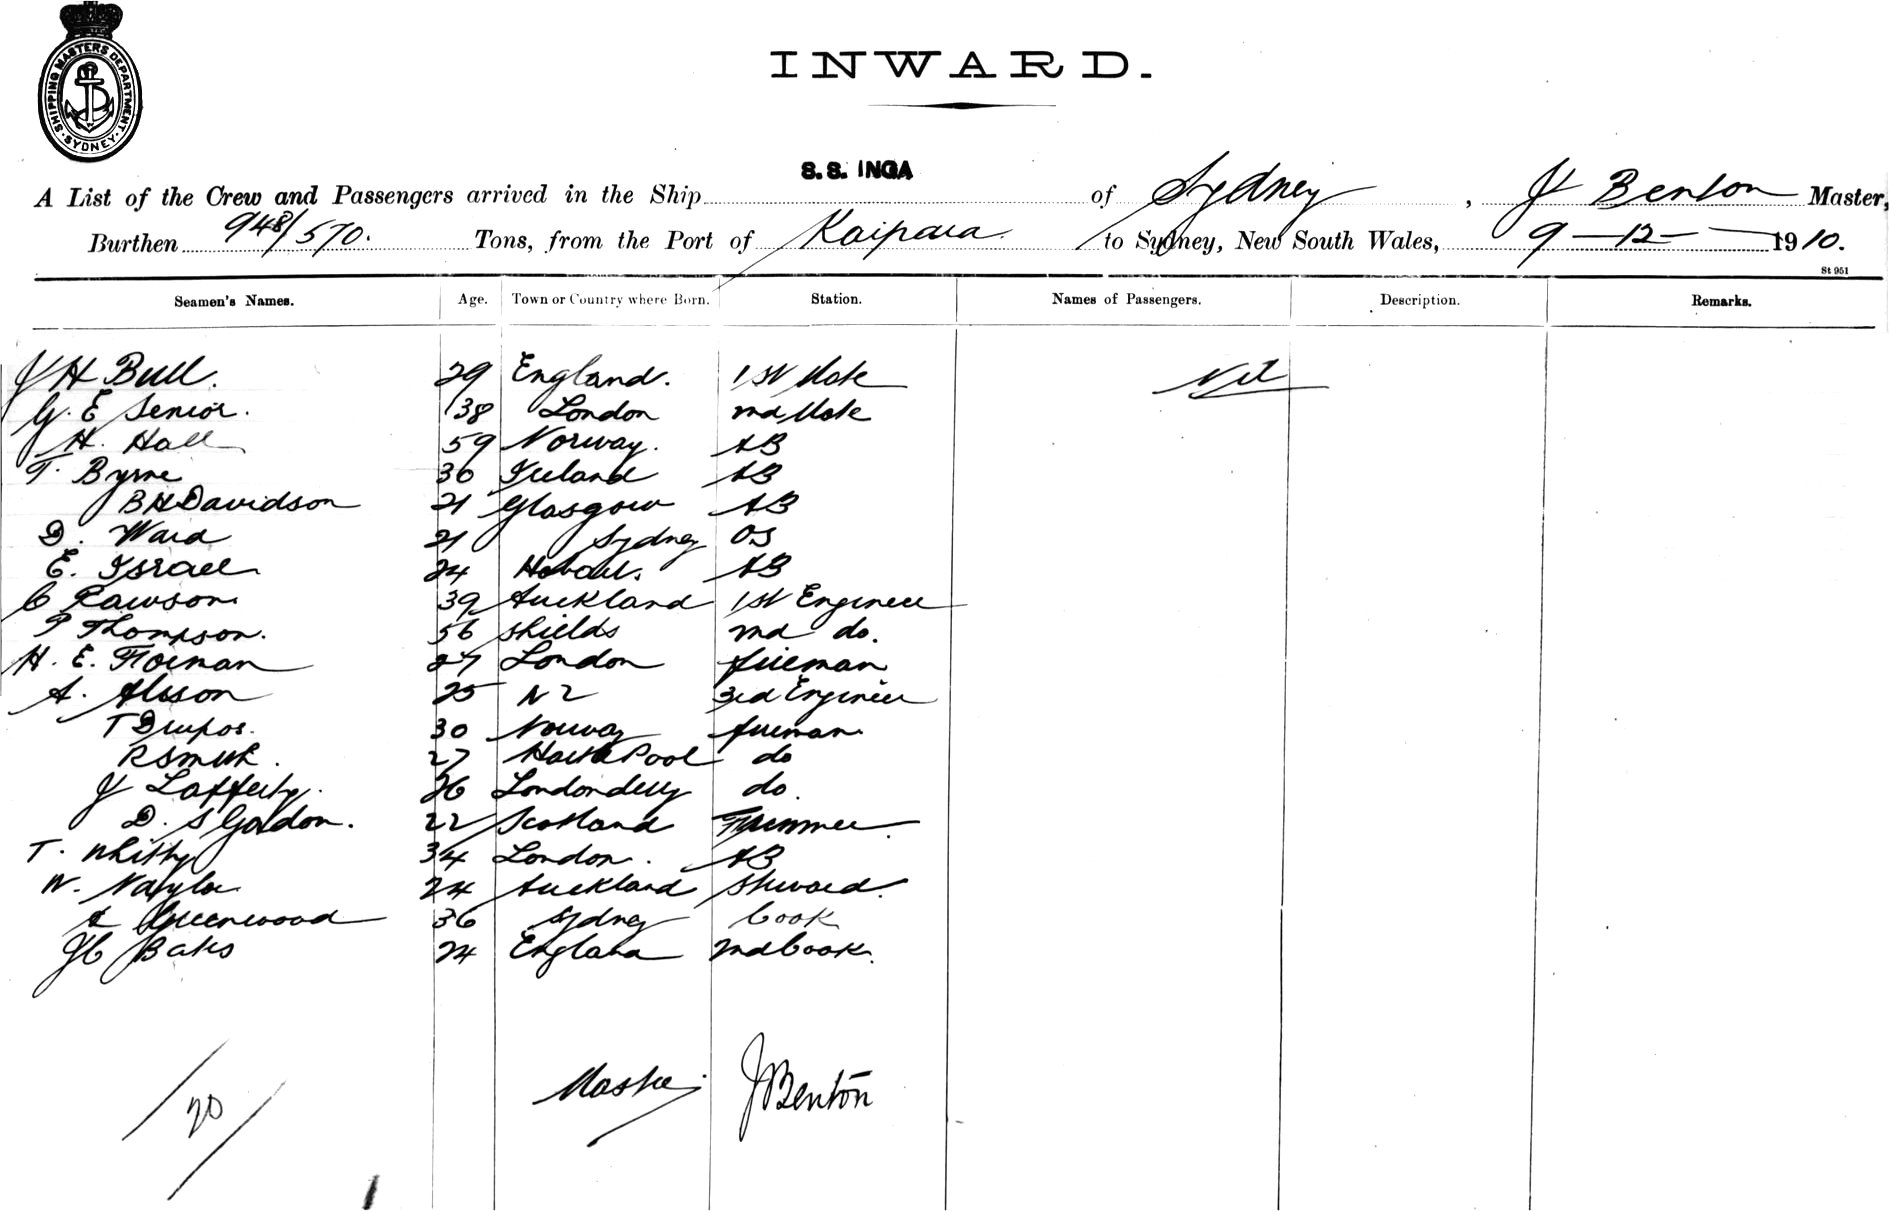 SHIPPING MASTERS DEPARTMENT
SYDNEY
INWARD.
A List of the Crew and Passengers arrived in the Ship S.S. INGA of Sydney, J Benton Master,
Burthen 948/570. Tons, from the Port of Kaipara to Sydney, New South Wales, 9-12-1910.
St 951
Seamen's Names. Age. Town or Country where Born. Station. Names of Passengers. Description. Remarks.
J H Bull. 29 England. 1st Mate Nil
G. E Senior. 38 London 2nd Mate
H. Hall 59 Norway. AB
T. Byrne 30 Ireland AB
B H Davidson 21 Glasgow AB
D. Ward 21 Sydney OS
E. Israel 24 Hobart. AB
C Rawson. 39 Auckland 1st Engineer
P Thompson. 56 Shields 2nd do.
H. E. 27 London fireman
A. 25 N Z 3rd Engineer
T 30 Norway fireman
R 27 Hartlepool do
J Lafferty. 26 Londonderry do.
D. S Gordon. 22 Scotland Trimmer.
T. Whitty 34 London. AB
W. Naylor 24 Auckland Steward.
Greenwood 36 Sydney Cook
J C Bates 24 England 2nd Cook.
Master J Benton
20